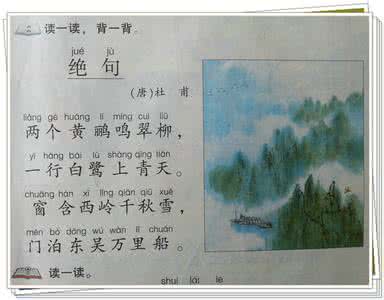 读一读，背一背。
jué jù
绝句
(唐)杜 甫
liǎng gè huáng lí míng cuì liǔ
两个黄鹂鸣翠柳，
yì háng bái lù shàng qīng tiān
一行白鹭上青天。
chuāng hán xī lǐng qiān qiū xuě
窗含西岭千秋雪，
mén bó dōng wú wàn lǐ chuán
门泊东吴万里船。
读一读。
shuǐ lái le